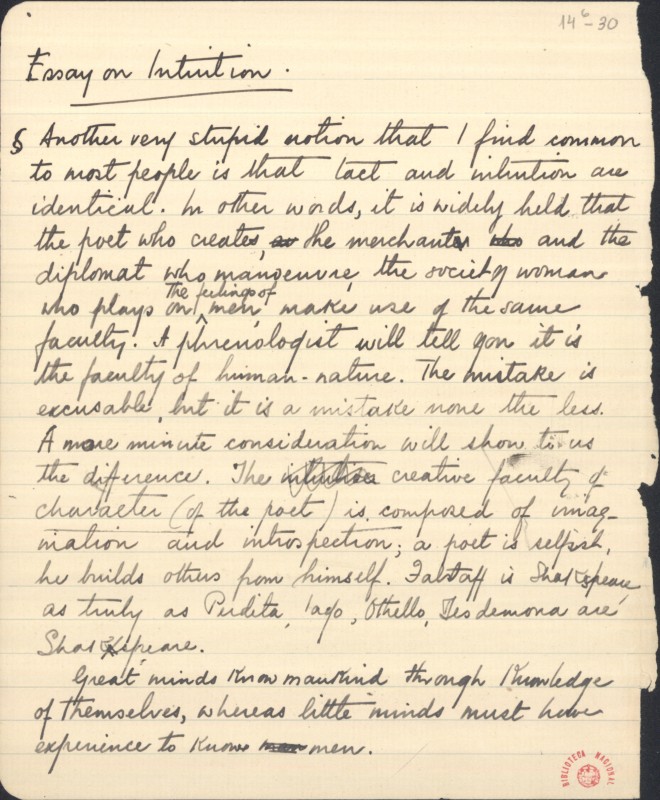 14⁶-30
Essay on Intuition.
§ Another very stupid notion that I find common
to most people is that tact and intuition are
identical. In other words, it is widely held that
the poet who creates, as the merchant who and the
diplomat who manoeuvre, the society woman
The feelings of
who plays on men, make use of the same
faculty. A phrenologist will tell you it is
the faculty of human-nature. The mistake is
excusable, but it is a mistake none the less.
A more minute consideration will show to us
the difference. The intuition creative faculty of
character (of the poet) is composed of imag-
ination and introspection; a poet is selfish,
he builds others from himself. Falstaff is Shakspeare,
as truly as Perdita, Iago, Othello, Desdemona are
Shakspeare.
Great minds know mankind through knowledge
of themselves, whereas little minds must have
experience to know men men.
BIBLIOTECA NACIONAL